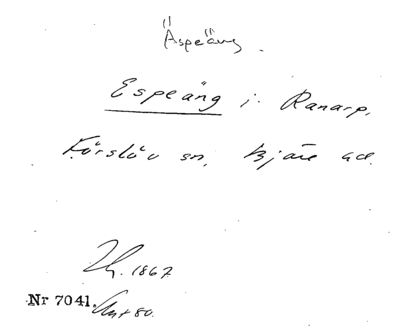 Äspeäng.
Espeäng i Ranarp,
Förslöv sn, Bjäre hd.
Th. 1867
Nr 7041.